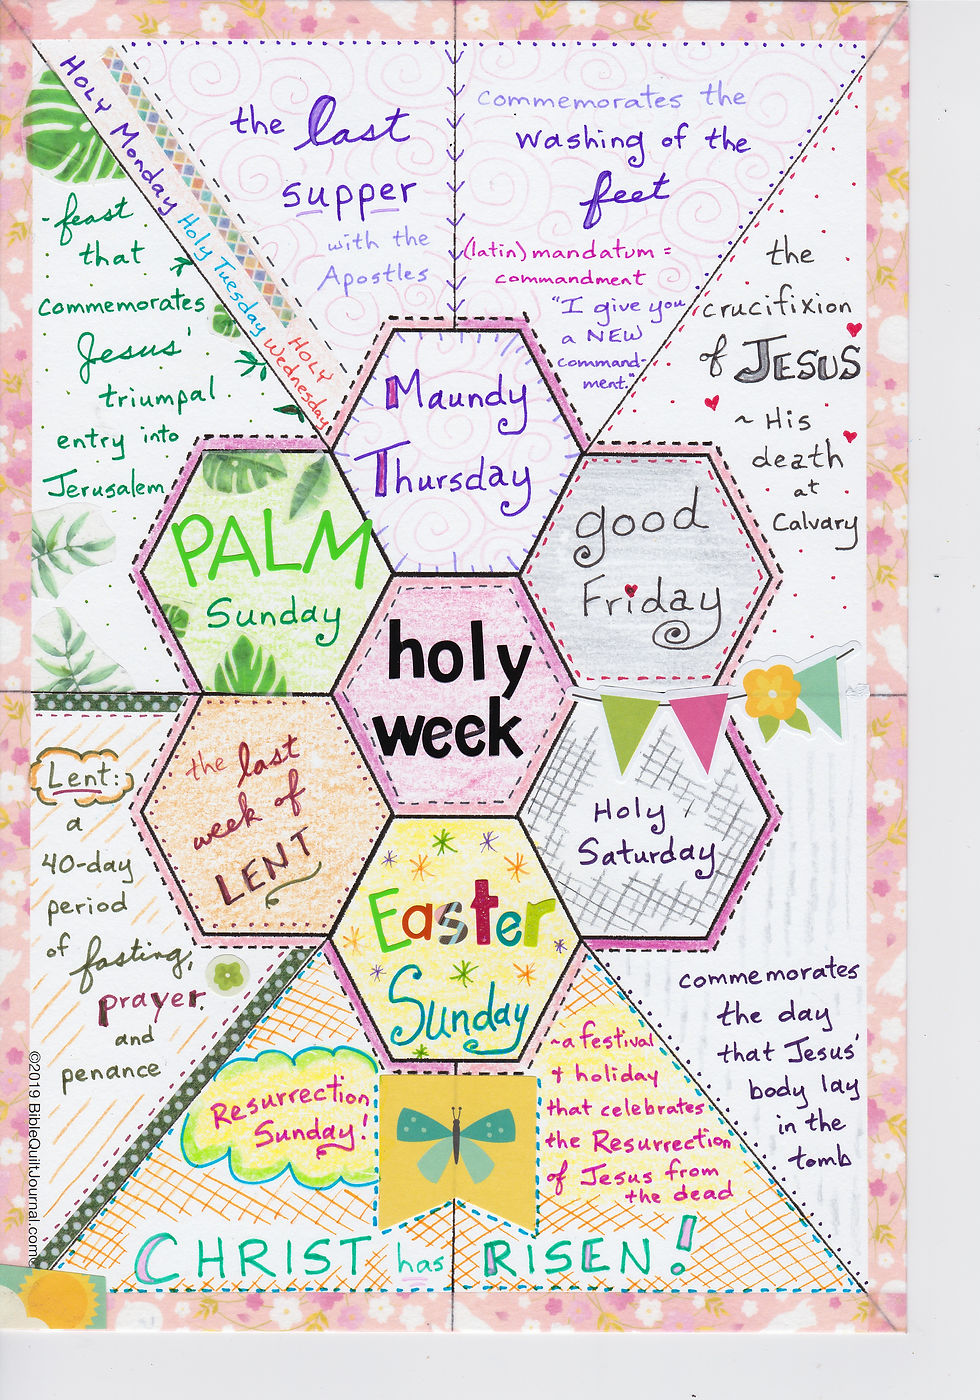 HOLY Monday
Holy Tuesday
HOLY
Wednesday
the last
supper
with the
Apostles
commemorates the
washing of the
feet
(latin) mandatum =
commandment
"I give you
a NEW
command-
ment."
- feast
that
commemorates
Jesus'
triumpal
entry into
Jerusalem
the
crucifixion
of JESUS
~ His
death
at
Calvary
Maundy
Thursday
PALM
Sunday
good
Friday
holy
week
the last
week of
LENT
Holy
Saturday
Easter
Sunday
Lent:
a
40-day
period
of fasting,
prayer
and
penance
commemorates
the day
that Jesus'
body lay
in the
tomb
Resurrection
Sunday!
~a festival
+ holiday
that celebrates
the Resurrection
of Jesus from
the dead
CHRIST has RISEN!
©2019 BibleQuiltJournal.com©